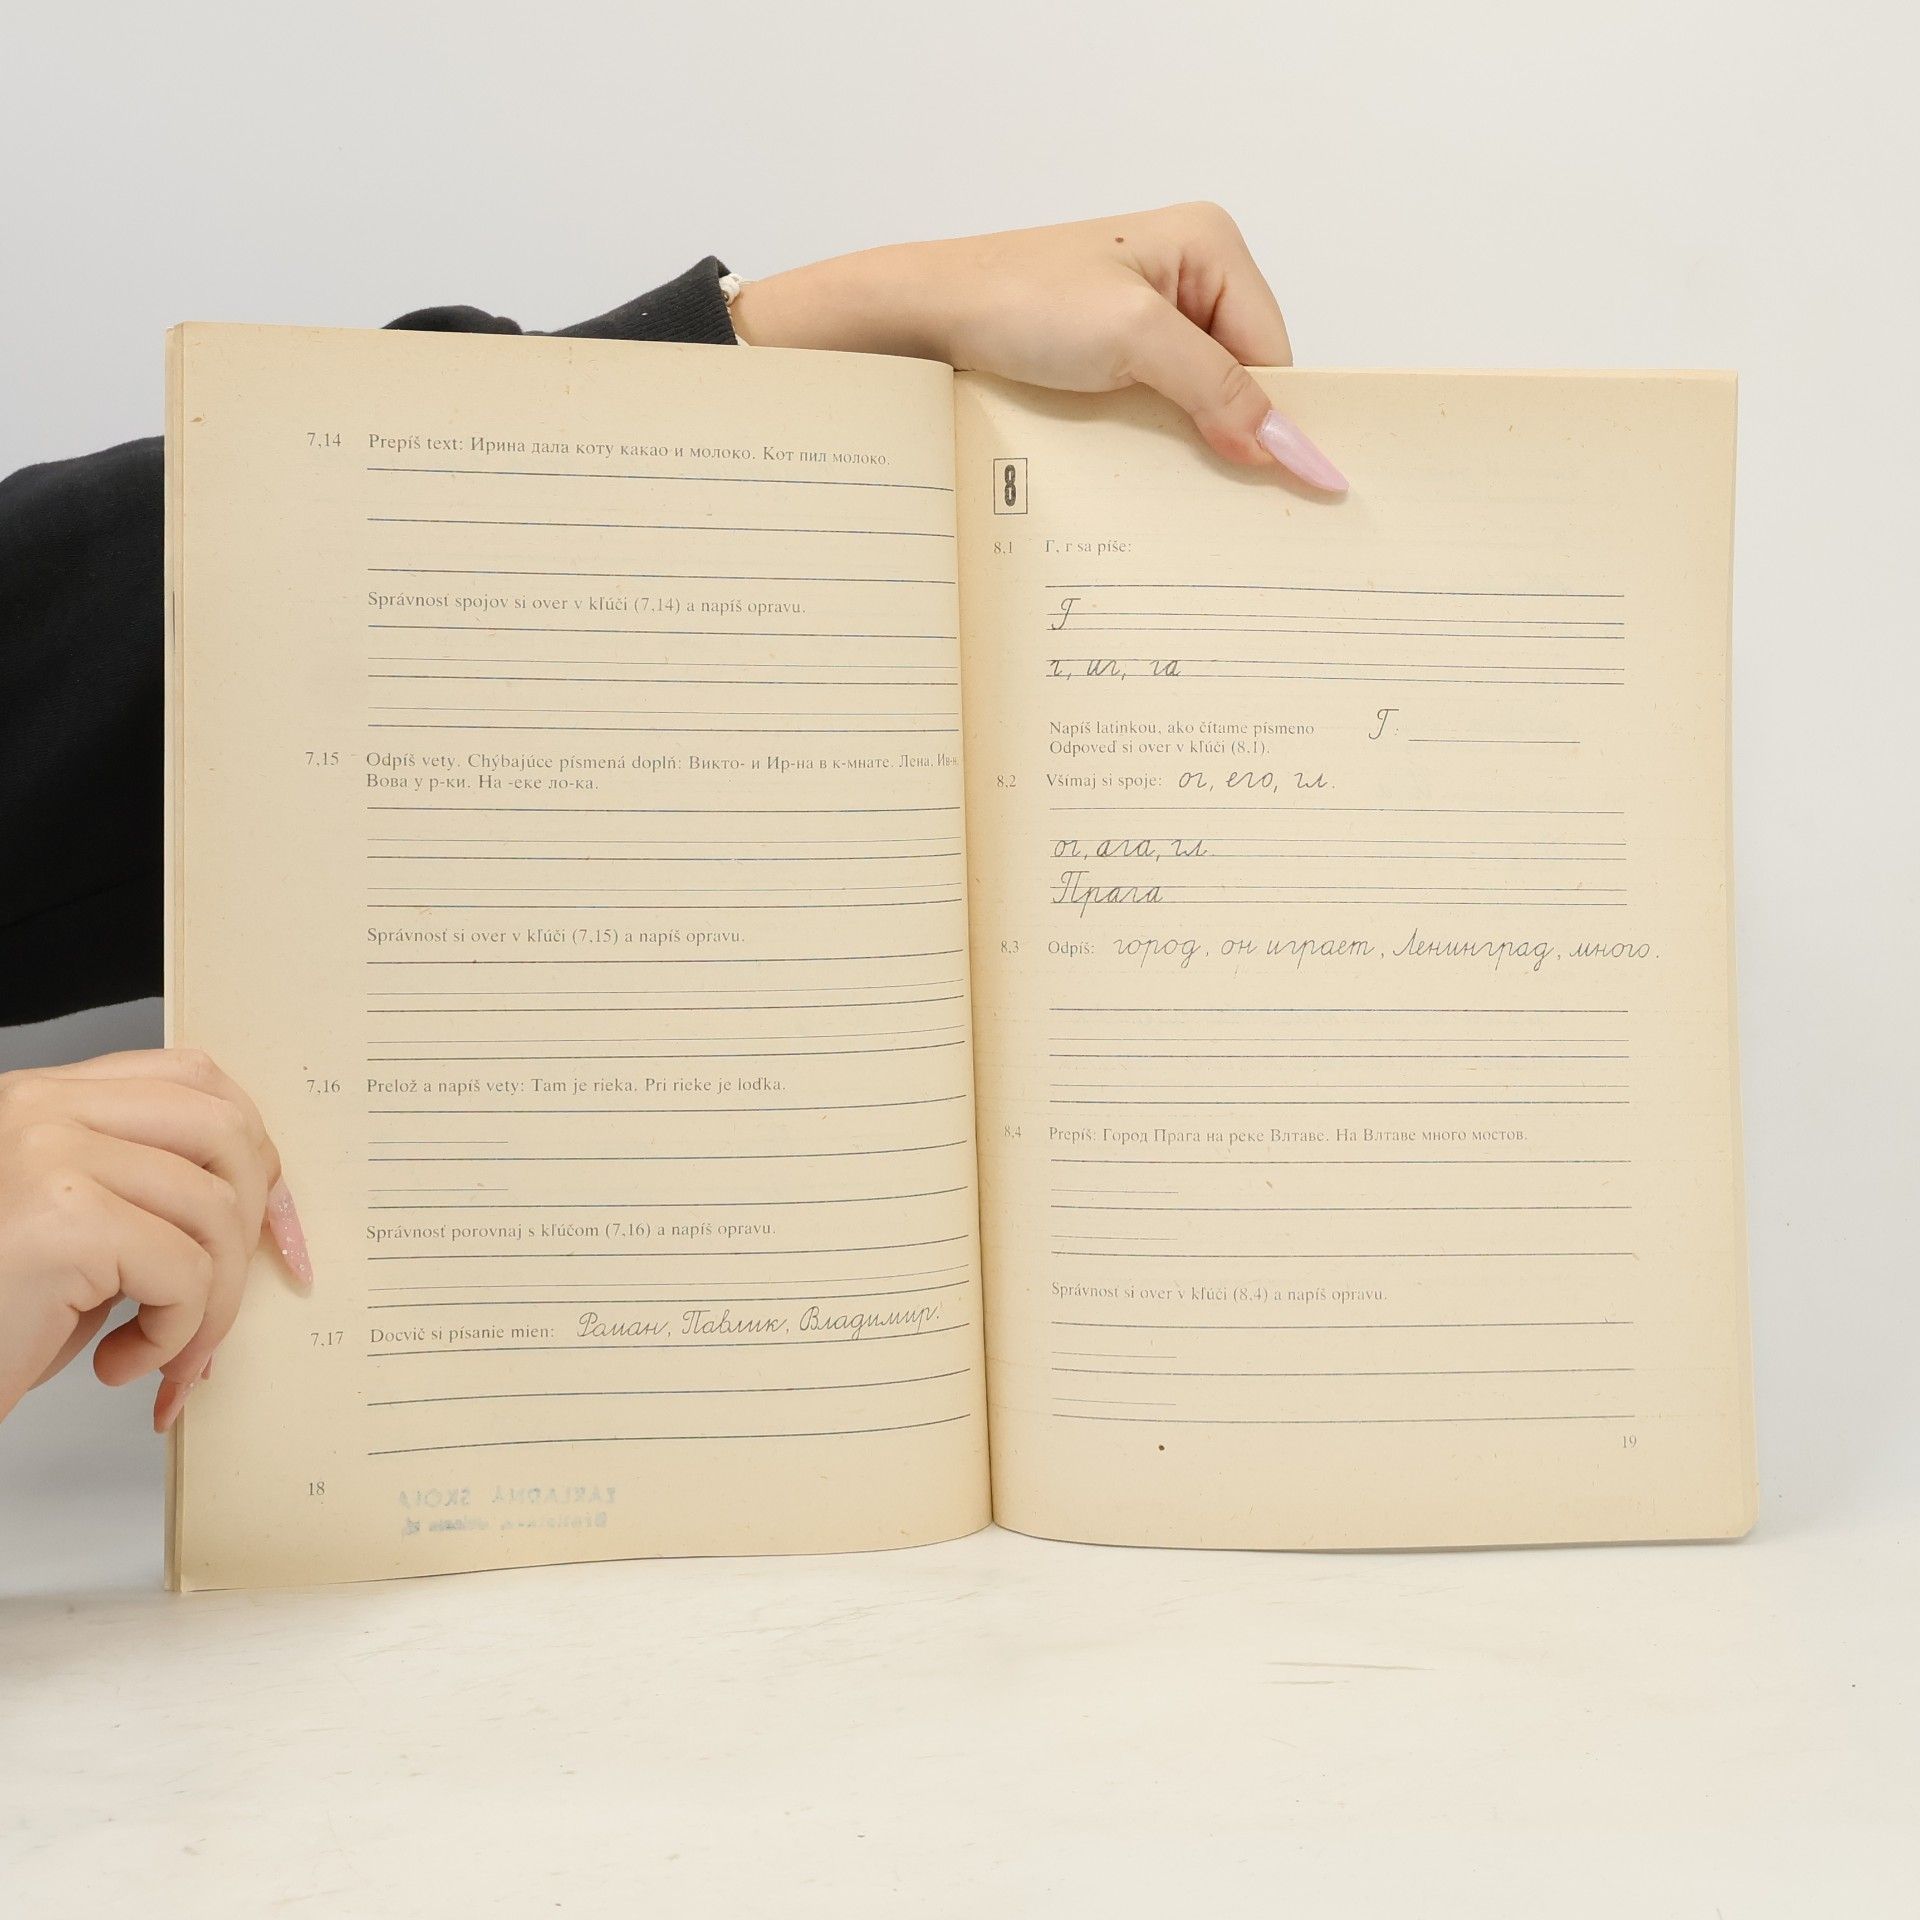 7,14 Prepíš text: Ирина дала коту какао и молоко. Кот пил молоко.
Správnosť spojov si over v kľúči (7,14) a napíš opravu.
7,15 Odpíš vety. Chýbajúce písmená doplň: Викто- и Ир-на в к-мнате. Лена. Ив-н.
Вова у р-ки. На -еке ло-ка.
Správnosť si over v kľúči (7,15) a napíš opravu.
7,16 Prelož a napíš vety: Tam je rieka. Pri rieke je loďka.
Správnosť porovnaj s kľúčom (7,16) a napíš opravu.
7,17 Docvič si písanie mien: Роман, Павлик, Владимир.
18
ZÁKLADNÁ ŠKOLA
8
8,1 Г, г sa píše:
Г
г, иг, га
Napíš latinkou, ako čítame písmeno Г:
Odpoveď si over v kľúči (8,1).
8,2 Všímaj si spoje: ог, его, гл.
ог, ага, гл.
Прага
8,3 Odpíš: город, он играет, Ленинград, много.
8,4 Prepíš: Город Прага на реке Влтаве. На Влтаве много мостов.
Správnosť si over v kľúči (8,4) a napíš opravu.
19